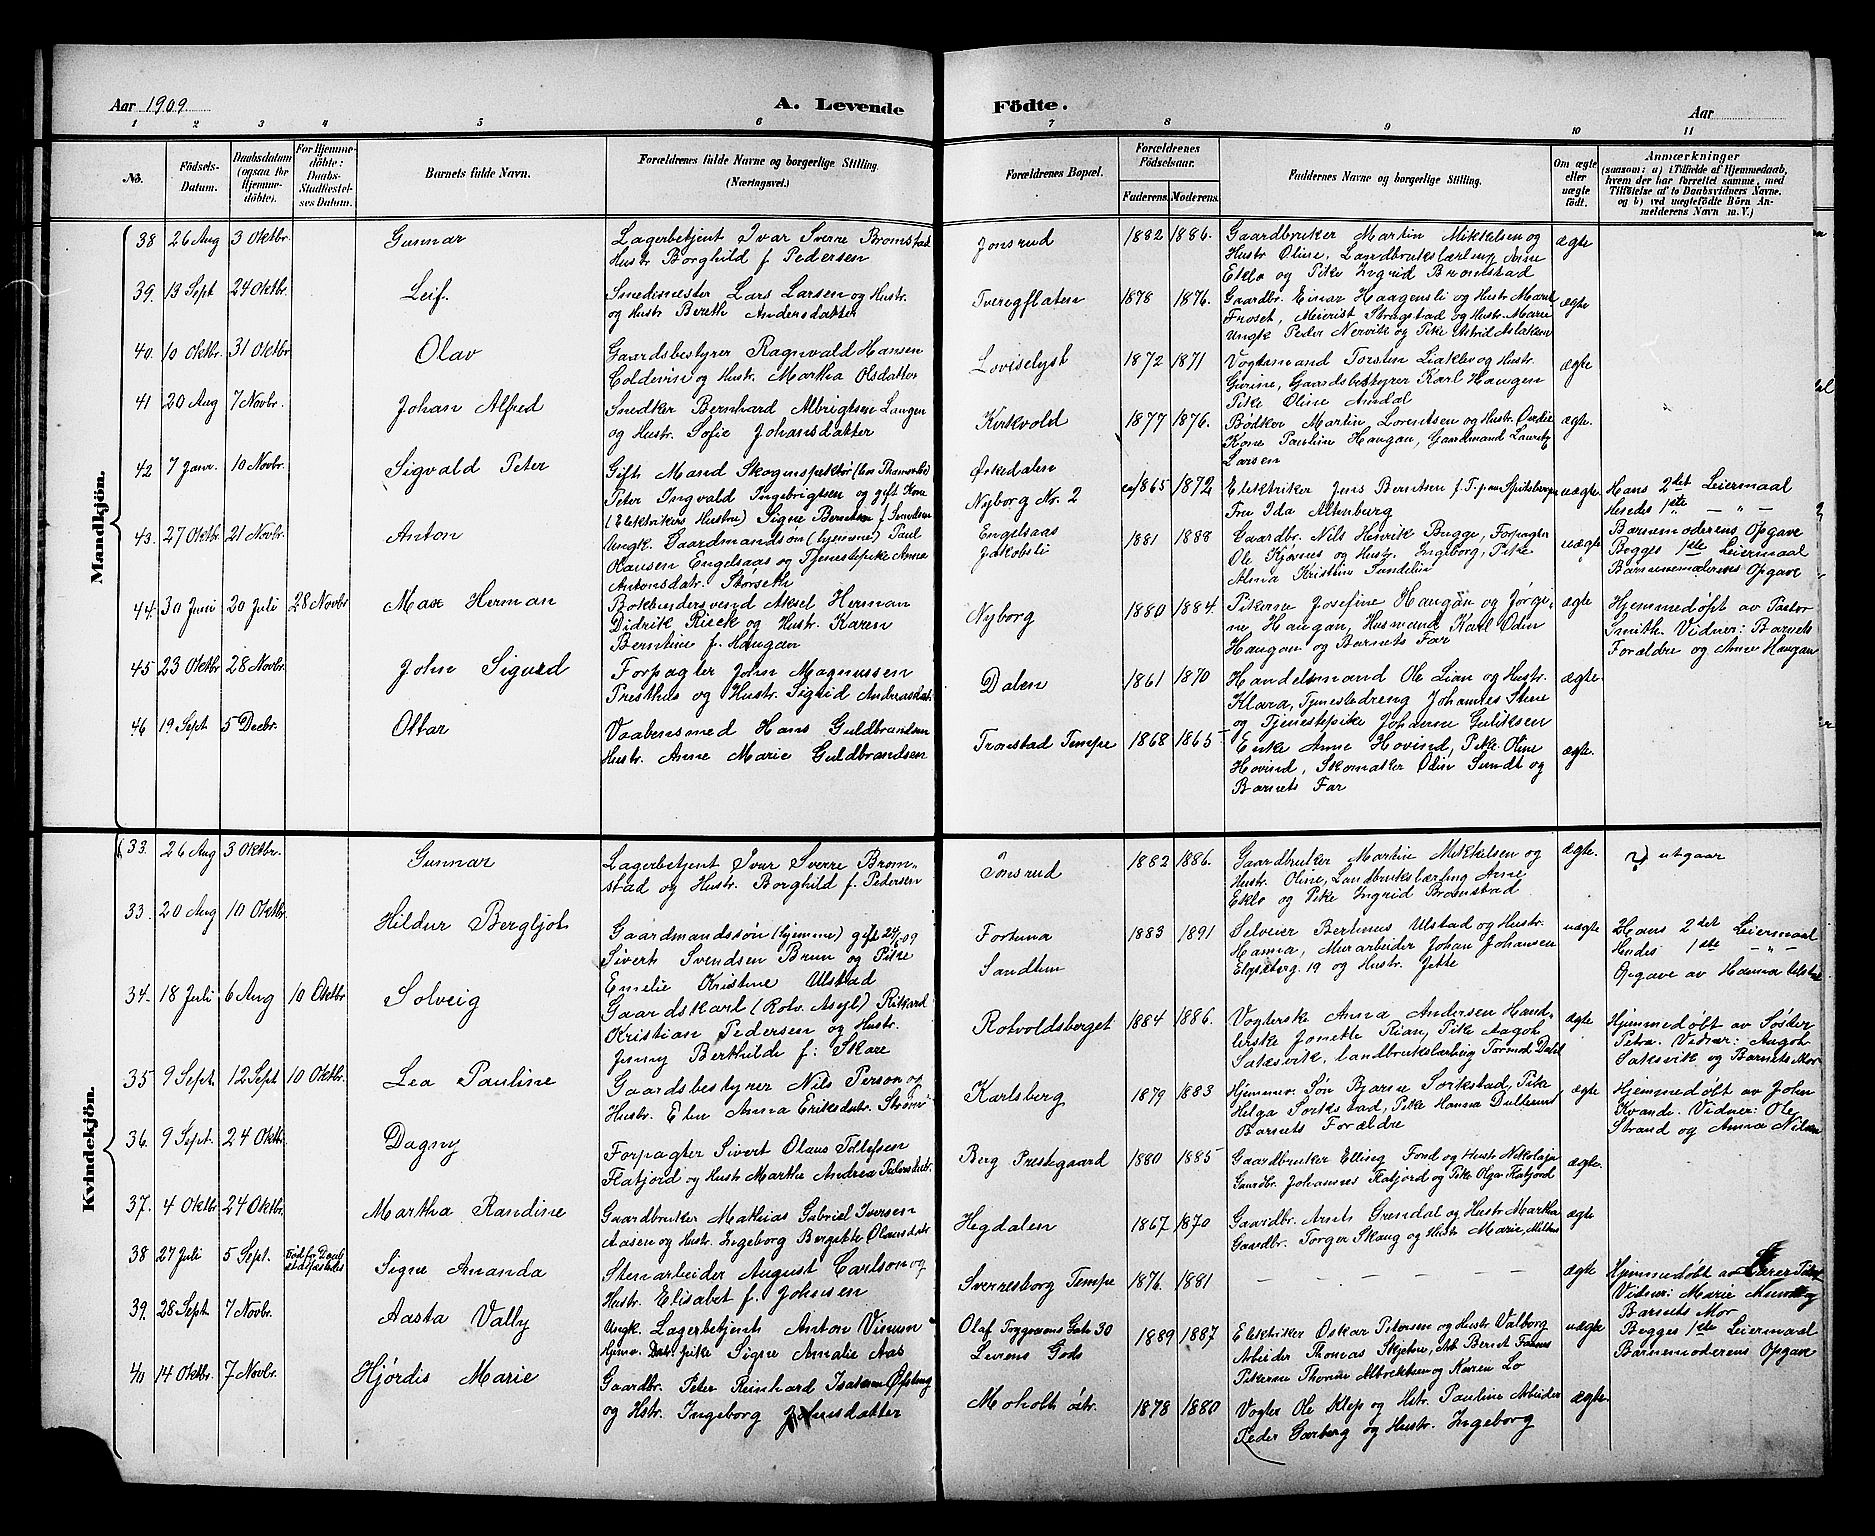 Aar 1909.
A. Levende Födte.
Aar
1 2 3 4 5 6 7 8 9 10 11
No.
Födsels-Datum.
Daabsdatum (ogsaa for Hjemmedöbte).
For Hjemmedöbte: Daabs-Stadfæstelses Datum.
Barnets fulde Navn.
Forældrenes fulde Navne og borgerlige Stilling. (Næringsvei.)
Forældrenes Bopæl.
Forældrenes Födselsaar.
Faderens. Moderens.
Faddernes Navne og borgerlige Stilling.
Om ægte eller uægte födt.
Anmærkninger
(saasom: a) i Tilfælde af Hjemmedaab, hvem der har forrettet samme, med Tilföielse af to Daabsvidners Navne. og b) ved uægtefödte Börn Anmelderens Navn m. V.)
Mandkjön.
38 26 Aug 3 Oktbr. Gunnar
Lagerbetjent Ivar Sverre Bromstad
Hustr Borghild f. Pedersen
Jonsrud 1882 1886.
Gaardbruker Martin Mikkelsen og
Hustr Oline, Landbrukslærling Arne
Eklo og Pike Ingrid Bromstad
ægte
39. 13 Sept 24 Oktbr. Leif.
Smedmester Lars Larsen og Hustr.
og Hustr Bereth Andersdatter
Tveregflaten 1878 1876.
Gaardbr. Einar Haagensli og Hustr Marit
Froset, Meierist Strugstad og Hustr. Marie
Ungk Peder Nervik og Pike Astrid
ægte
40. 10 Oktbr. 31 Oktbr Olav
Gaardsbestyrer Ragnvald Hansen
Coldevin og Hustr. Martha Olsdatter
Loviselyst 1872 1871
Vogtermand Torsten Liaklev og Hustr.
Gurine, Gaardsbestyrer Karl Haugen
Pike Oline Amdal
ægte
41 20 Aug 7 Novbr. Johan Alfred
Snedker Bernhard Albrigtsen Laugen
og Hustr. Sofie Johansdatter
Kirkvold 1877 1876.
Bødker Martin Lorentsen og Hustr.
Kone Pauline Haugan, Gaardmand Lauritz
Larsen
ægte.
42 7 Janr. 10 Novbr. Sigvald Peter
Gift Mand Skoginspektør (hos Thams)
Peter Ingvald Ingebrigtsen og gift Kone
(Elektrikers Hustru) Signe Berntsen f. Svendsen
Ørkedalen
Nyborg Nr. 2 1865 1872
Elektriker Jens Berntsen f. T. paa Spitsbergen
Fru Ida Altenburg
uægte
Hans 2det Leiermaal
Hendes 1ste — " —
Barnemoderens Opgave
43. 27 Oktbr 21 Novbr. Anton
Ungk. Gaardmandssøn (hjemme) Paul
Olausen Engelsaas og Tjenestepike Anna
Antonsdatr. Størseth
Engelsaas
Jakobsli 1881 1888
Gaardbr. Nils Henrik Bugge, Forpagter
Ole Kjønes og Hustr. Ingeborg, Pike
Alma Kristine Sundelin
uægte
Begges 1ste Leiermaal
Barnemoderens Opgave
44. 30 Juni 20 Juli 28 Novbr Max Herman
Bokbindersvend Aksel Herman
Didrik Rieck og Hustr. Karen
Berntine f. Haugan
Nyborg 1880 1884.
Pikerne Josefine Haugan og Jørgi-
ne Haugan, Husmand Karl Odin
Haugan og Barnets Far
ægte
Hjemmedøpt av Pastor
Smith. Vidner: Barnets
Forældre og Anne Haugan
45 23 Oktbr 28 Novbr. John Sigurd
Forpagter John Magnussen
Presthus og Hustr. Sigrid Andersdatr.
Dalen 1861 1870
Handelsmand Ole Lian og Hustr.
Klara, Tjenestedreng Johannes Stene
og Tjenestepike Johanne Guliksen
ægte
46 19 Sept 5 Decbr. Ottar
Vaabensmed Hans Guldbrandsen
Hustr. Anne Marie Guldbrandsen
Tronstad Tempe 1868 1865
Enke Anne Hovind, Pike Oline
Hovind, Skomaker Odin Sundt og
Barnets Far
ægte.
Kvindekjön.
33. 26 Aug 3 Oktbr. Gunnar
Lagerbetjent Ivar Sverre Brom-
stad og Hustr. Borghild f. Pedersen
Jonsrud 1882 1886.
Gaardbruker Martin Mikkelsen og
Hustr. Oline, Landbrukslærling Arne
Eklo og Pike Ingrid Bromstad
ægte.
utgaar
33. 20 Aug 10 Oktbr. Hildur Bergljot
Gaardmandssøn (hjemme) gift 24/6 09
Sivert Svendsen Bruun og Pike
Emelie Kristine Ulstad
Fortuna
Sandlun 1883 1891
Selveier Bertinus Ulstad og Hustr.
Hanna, Murarbeider Johan Johansen
Elgseterg. 19 og Hustr. Jette
uægte
Hans 2det Leiermaal
Hendes 1ste — " —
Opgave av Hanna Ulstad
34. 18 Juli 6 Aug 10 Oktbr Solveig
Gaardskarl (Rotv. Asyl) Rikard
Kristian Pedersen og Hustr.
Jenny Berthilde f: Skare
Rotvoldsberget 1884 1886.
Vogterske Anna Andersen Hand-
lerske Jonette Rian, Pike Aagoh
Sataxvik, landbrukslærling Tormod Dahl
ægte
Hjemmedøbt av Søster
Petra. Vidner: Aagoh
Sataksvik og Barnets Mor
35 9 Sept. 12 Sept 10 Oktbr. Lea Pauline
Gaardsbestyrer Nils Person og
Hustr. Elen Anna Eriksdatr. Strøm
Karlsberg 1879 1883
Hjemmev. Søn Bjarne Sorkstad, Pike
Helga Sorkstad, Pike Hanna Dullerud
Barnets Forældre
ægte
Hjemmedøbt av John
Kvande. Vidner: Ole
Strand og Anna Nilsen
36. 9 Sept. 24 Oktbr. Dagny
Forpagter Sivert Olaus Tollefsen
Flatjord og Hustr Martha Andrea
Berg Prestegaard 1880 1885
Gaardbruker Elling Fond og Hustr Nikolaja
Gaardbr. Johannes Flatjord og Pike Olga Flatjord
ægte.
37. 4 Oktbr 24 Oktbr. Martha Randine
Gaardbruker Mathias Gabriel Iversen
Aasen og Hustr. Ingeborg Bergitte Olausdatr.
Hegdalen 1867 1870
Gaardbr. Arnt Grendal og Hustr Martha
Gaardbr. Torger Skaug og Hustr Marie,
ægte
38 27 Juli 5 Sept. Død før Daabs-
stadfæstelses Signe Amanda
Stenarbeider August Carlson og
Hustr. Elisabet f. Johnsen
Sverresborg Tempe 1876. 1881
— — — — —
ægte
Hjemmedøbt av Lærer
Vidner: Marie
Barnets Mor
39. 28 Sept 7 Novbr. Aasta Vally
Ungk. Lagerbetjent Anton Vinum
Hjmv. Datr. pike Signe Amalie Aas
Olaf Tryggvesens Gate 30
Leirens Gods 1889 1887
Elektriker Oskar Petersen og Hustr Valborg
Arbeider Thomas Skjetne, Arb. Bernt
Pikerne Thorine Albrektsen og Karen Lo
uægte
Begges 1ste Leiermaal
Barnemoderens Opgave
40 14 Oktbr. 7 Novbr. Hjørdis Marie
Gaardbr. Peter Reinhard Isaksen Øfsteng
og Hstr. Ingeborg Johnsdatter
Moholt östr. 1878 1880
Vogter Ole Klep og Hstr. Pauline Arbeider
Peder Garberg og Hustr. Ingeborg
ægte.